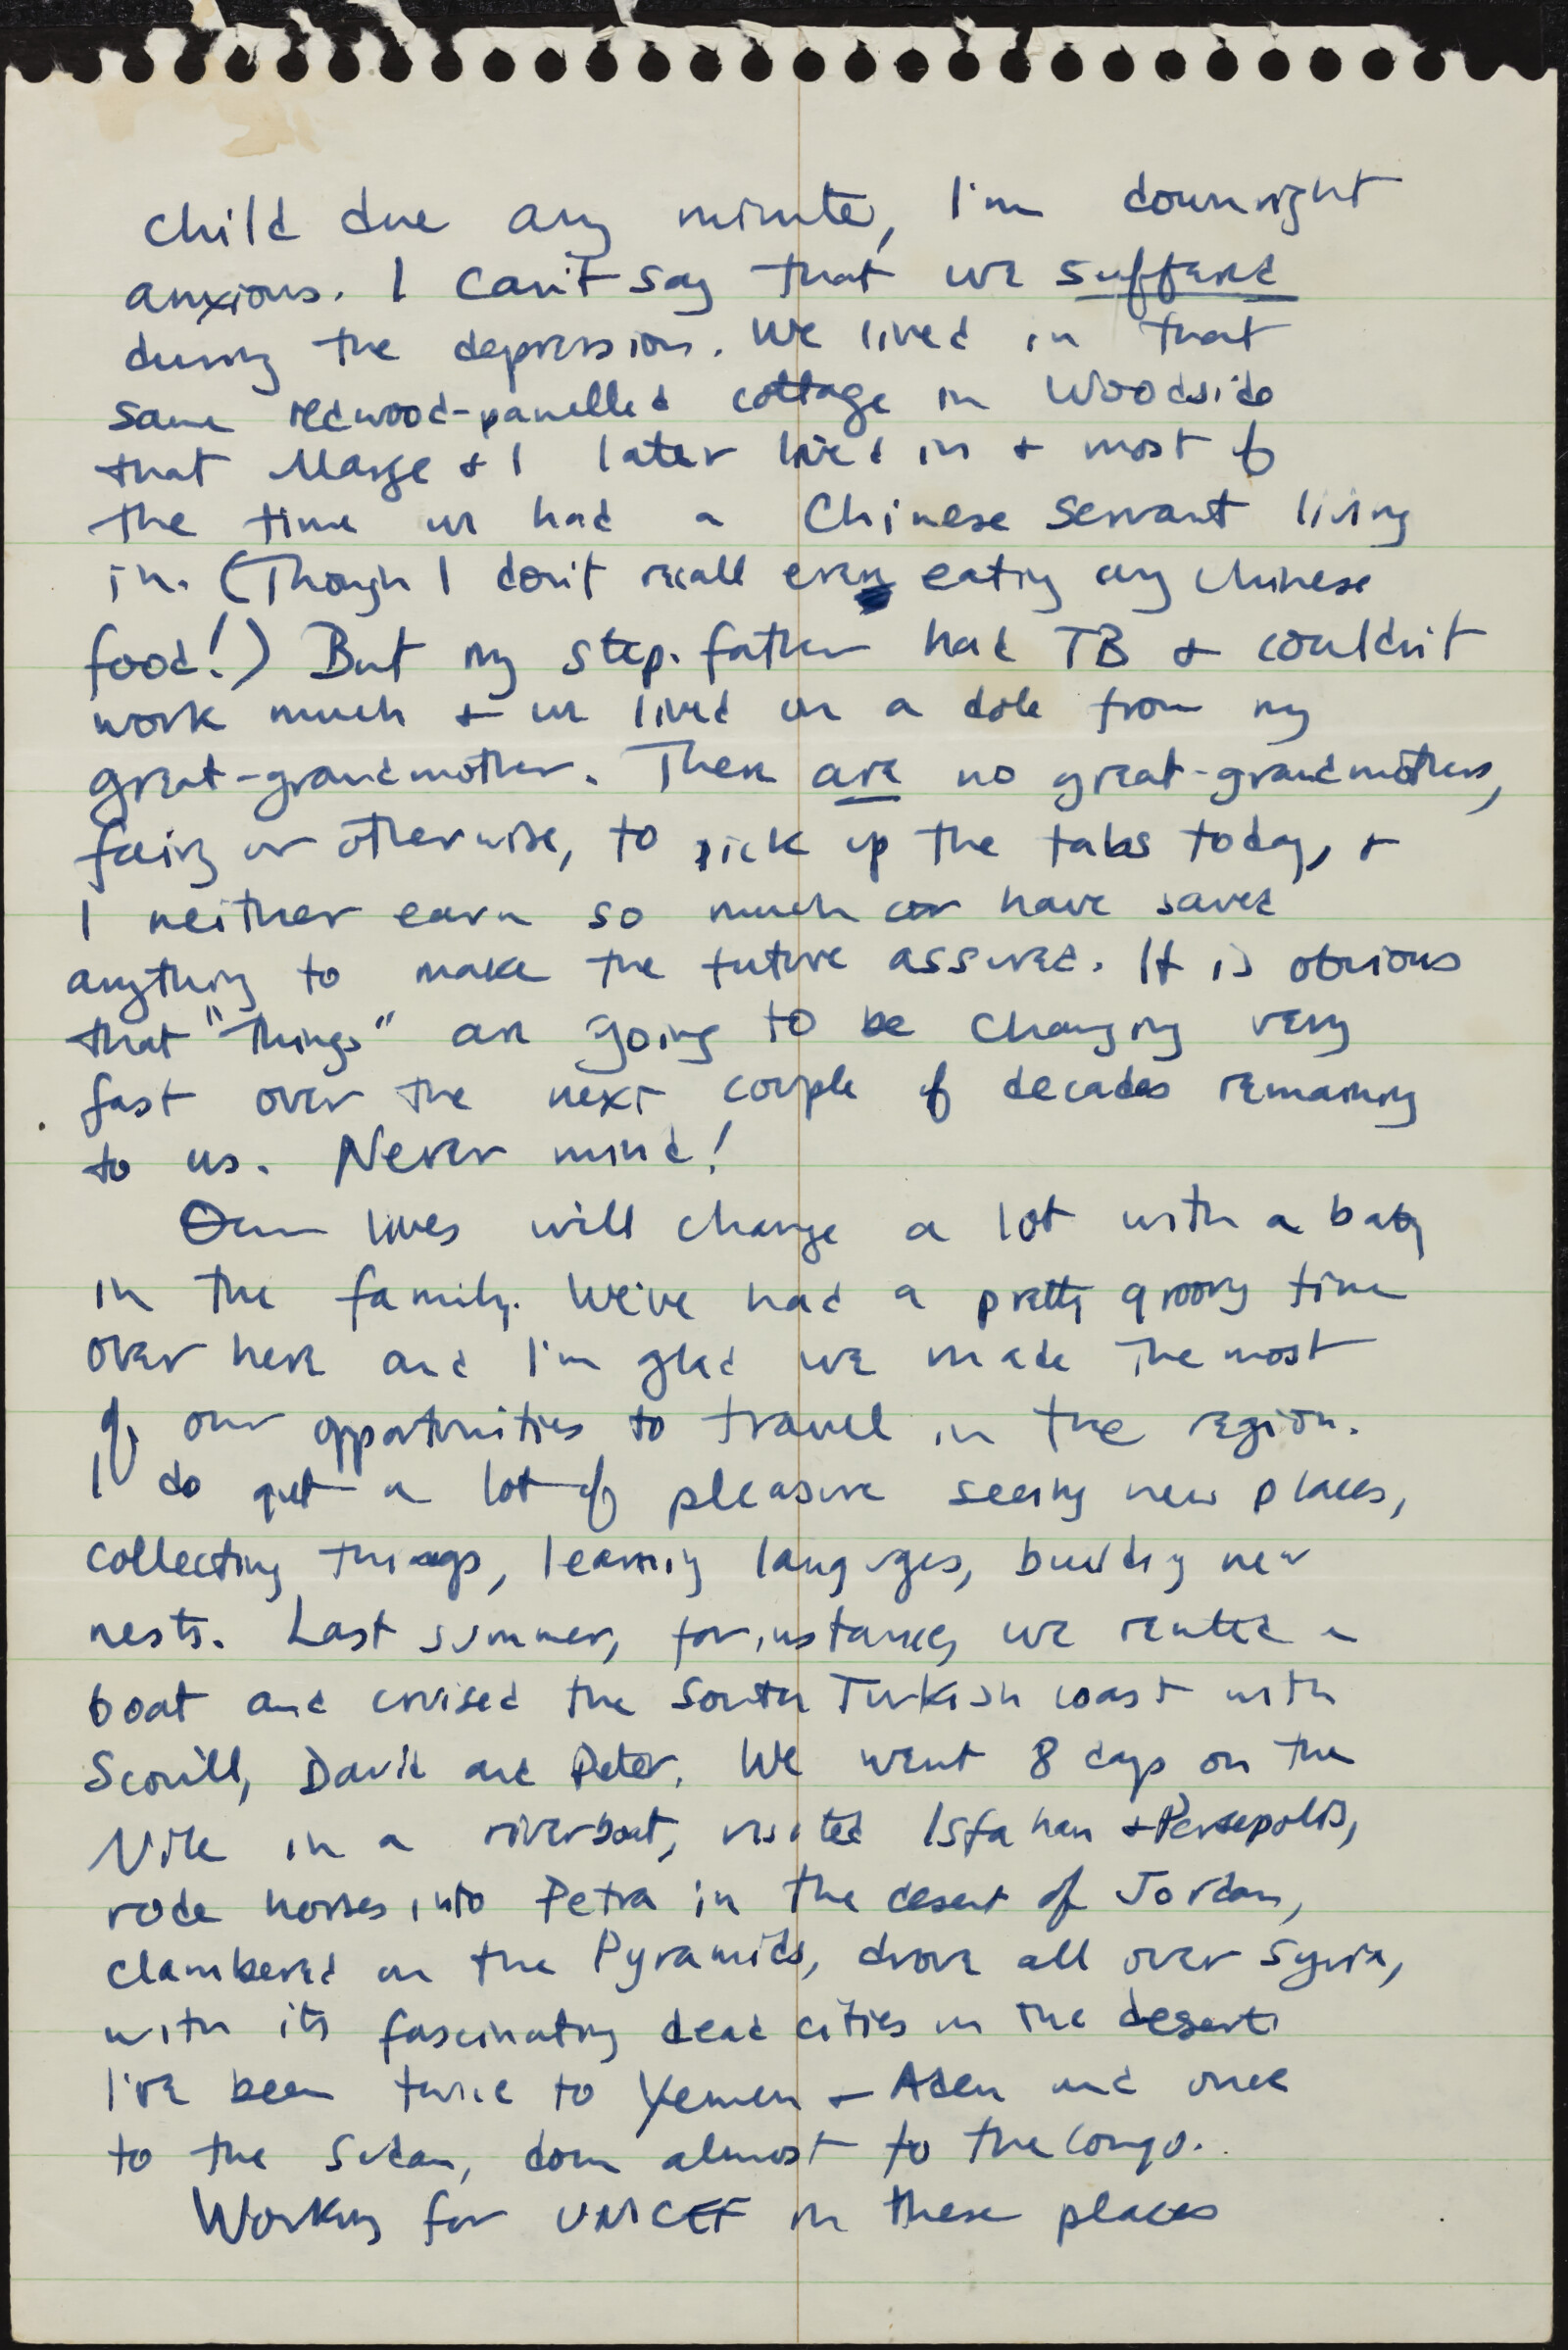 child due any minute, I'm downright
anxious. I can't say that we suffered
during the depression. We lived in that
same redwood-panelled cottage in Woodside
that Marge & I later lived in & most of
the time we had a Chinese servant living
in. (Though I don't recall ever eating any Chinese
food!) But my step-father had TB & couldn't
work much & we lived on a dole from my
great-grandmother. There are no great-grandmothers,
fairy or otherwise, to pick up the tabs today, &
I neither earn so much or have saved
anything to make the future assured. It is obvious
that "things" are going to be changing very
fast over the next couple of decades remaining
to us. Never mind!
Our lives will change a lot with a baby
in the family. We've had a pretty groovy time
over here and I'm glad we made the most
of our opportunities to travel in the region.
I do get a lot of pleasure seeing new places,
collecting things, learning languages, building new
nests. Last summer, for instance, we rented a
boat and cruised the South Turkish coast with
Scovill, David and Peter. We went 8 days on the
Nile in a riverboat, visited Isfahan & Persepolis,
rode horses into Petra in the desert of Jordan,
clambered on the Pyramids, drove all over Syria,
with its fascinating dead cities in the desert.
I've been twice to Yemen & Aden and once
to the Sudan, down almost to the Congo.
Working for UNICEF in these places